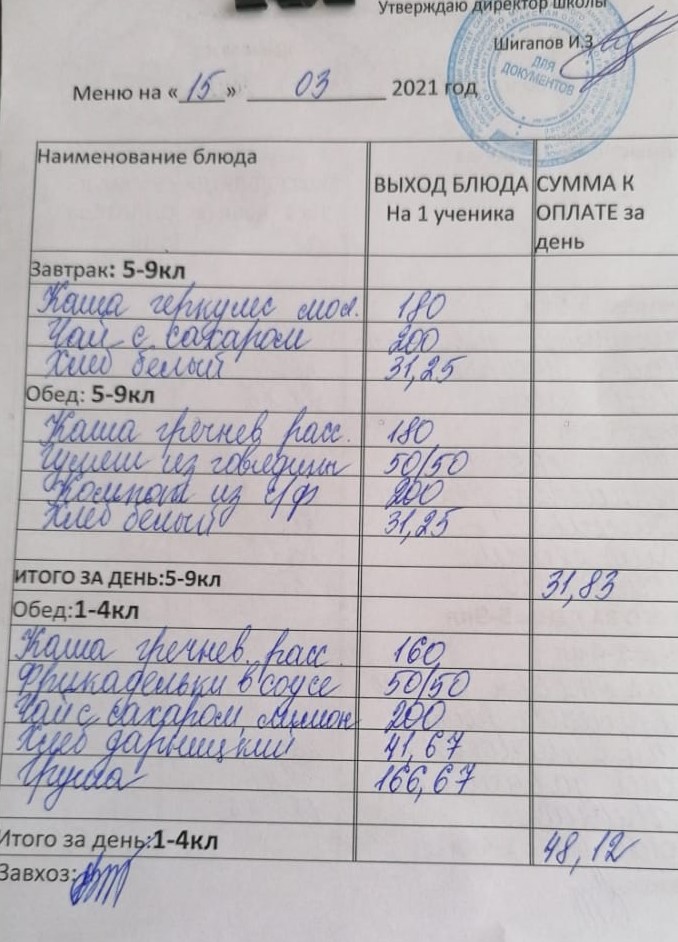 Утверждаю директор школы
Шигапов И.З
ДЛЯ ДОКУМЕНТОВ
Меню на «15» 03 2021 год
Наименование блюда
ВЫХОД БЛЮДА На 1 ученика
СУММА К ОПЛАТЕ за день
Завтрак: 5-9кл
Каша геркулес мол. 180
Чай с сахаром 200
Хлеб белый 31,25
Обед: 5-9кл
Каша гречнев расс. 180
Гуляш из говядины 50/50
Компот из с/ф 200
Хлеб белый 31,25
ИТОГО ЗА ДЕНЬ:5-9кл 31,83
Обед:1-4кл
Каша гречнев. расс 160
Фрикадельки в соусе 50/50
Чай с сахаром лимон 200
Хлеб дарницкий 41,67
Груша 166,67
Итого за день:1-4кл 48,12
Завхоз: